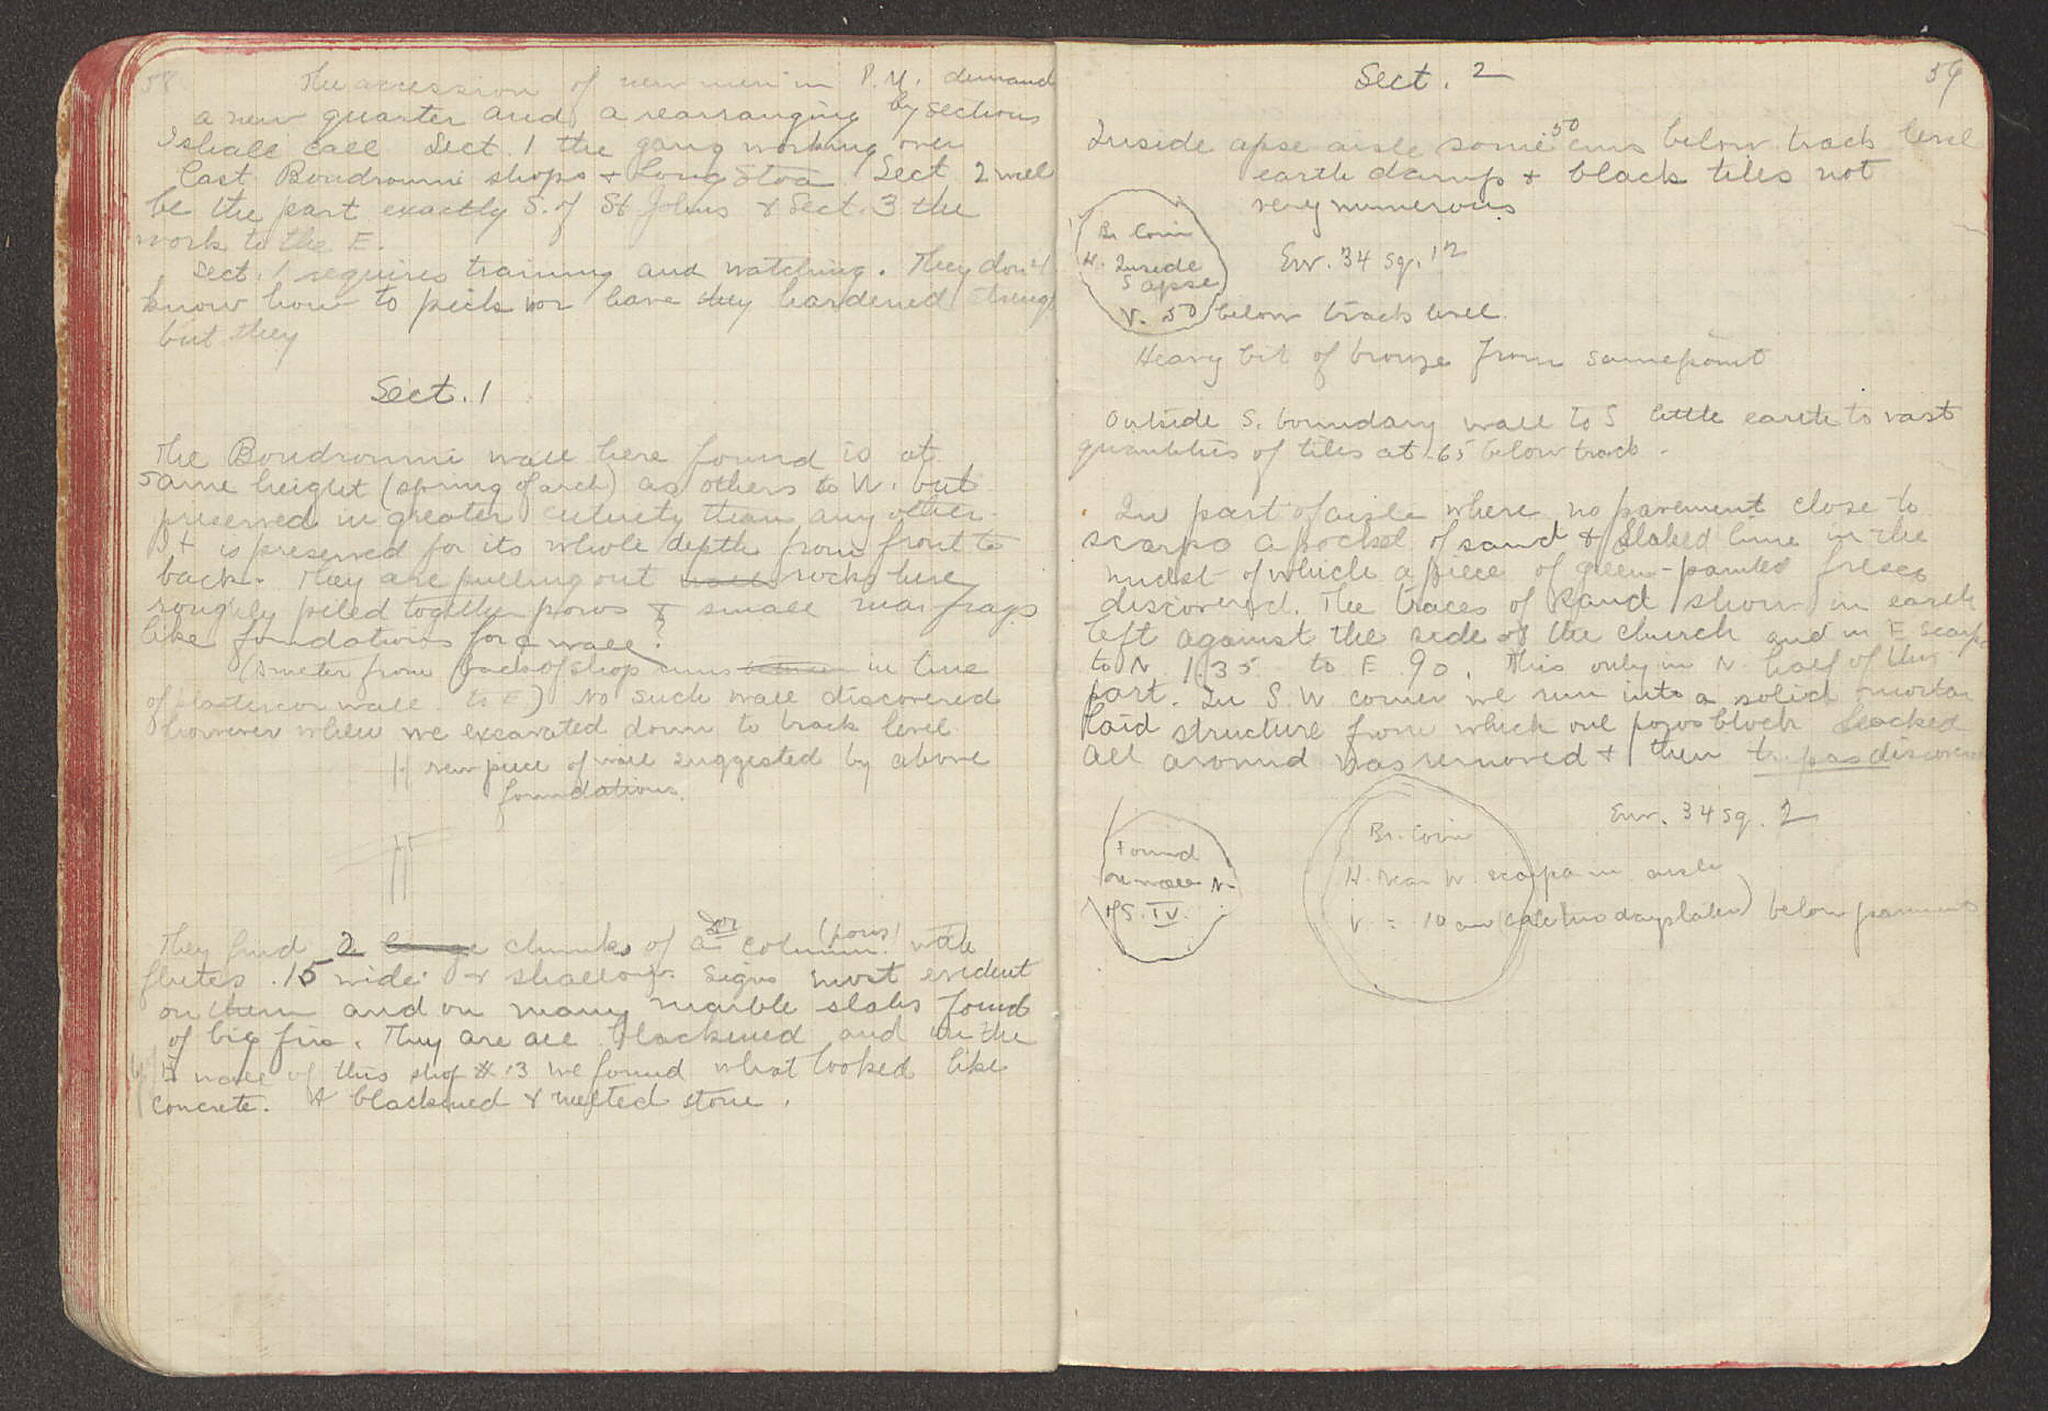 58
The accession of new men in P.M. demand
a new quarter and a rearranging by sections
I shall call Sect. 1 the gang working over
last Boudroumi shops + Long Stoa Sect 2 will
be the part exactly S. of St Johns & Sect. 3 the
work to the E.
Sect. 1 requires training and watching. They don't
know how to pick nor have they hardened
but they
Sect. 1
The Boudroumi wall here found is at
same height (spring of arch) as others to W. but
preserved in greater than any other.
It is preserved for its whole depth from front to
back. They are pulling out rocks here
roughly piled together poros & small mar frags
like foundations for a wall?
(5 meter from back of shop runs in line
of wall to E) No such wall discovered
however when we excavated down to track level
H new piece of wall suggested by above
foundations.
They find 2 chunks of a Dor column (poros) with
flutes .15 wide & shallow. Signs most evident
on them and on many marble slabs found
of big fire. They are all blackened and in the
wall of this shop # 13 we found what looked like
concrete. & blackened & melted stone.
Sect. 2
59
Inside apse aisle some 50 cms below track level
earth damp & black tiles not
very numerous
Br Coin
H. Inside
S apse
V. 50 below track level
Env. 34 Sq. 12
Heavy bit of bronze from same point
Outside S. boundary wall to S little earth to vast
quantities of tiles at .65 below track.
In part of aisle where no pavement close to
scarpa a pocket of sand & slaked lime in the
midst of which a piece of green-painted fresco
discovered. The traces of sand show in earth
left against the side of the church and in E scarpa
to N 1.35 to E .90. This only in N half of this
part. In S.W corner we run into a solid mortar
laid structure from which one poros block
all around was removed & then discovered
Env. 34 Sq. 2
Found
on wall N.
of S. IV.
Br. Coin
H. Near W. scarpa in aisle
V = 10 cm (two days later) below pavement